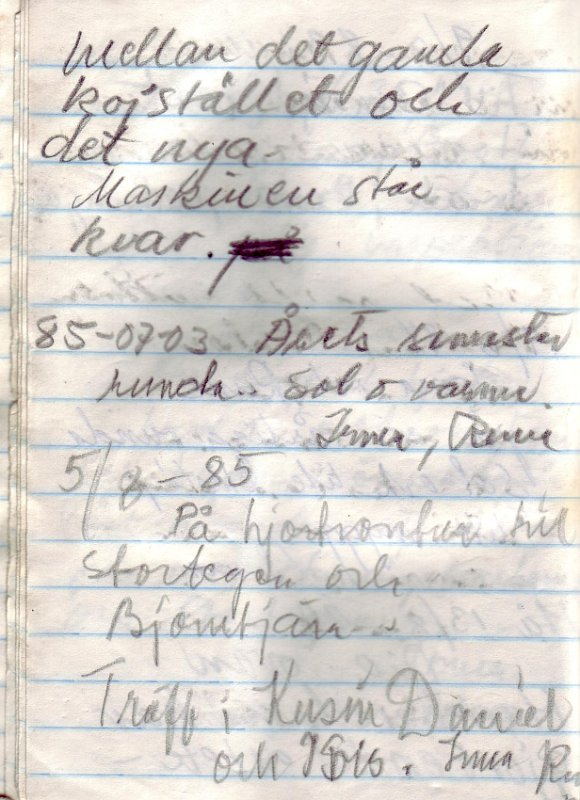 mellan det gamla
kojstället och
det nya.
Maskinen står
kvar.
85-07-03 Årets semester
runda.. Sol o värme.
Irma, Rune
5/8-85
På hjortrontur till
Stortegen och
Björntjärn..
Träff; Kusin Daniel
och. Irma